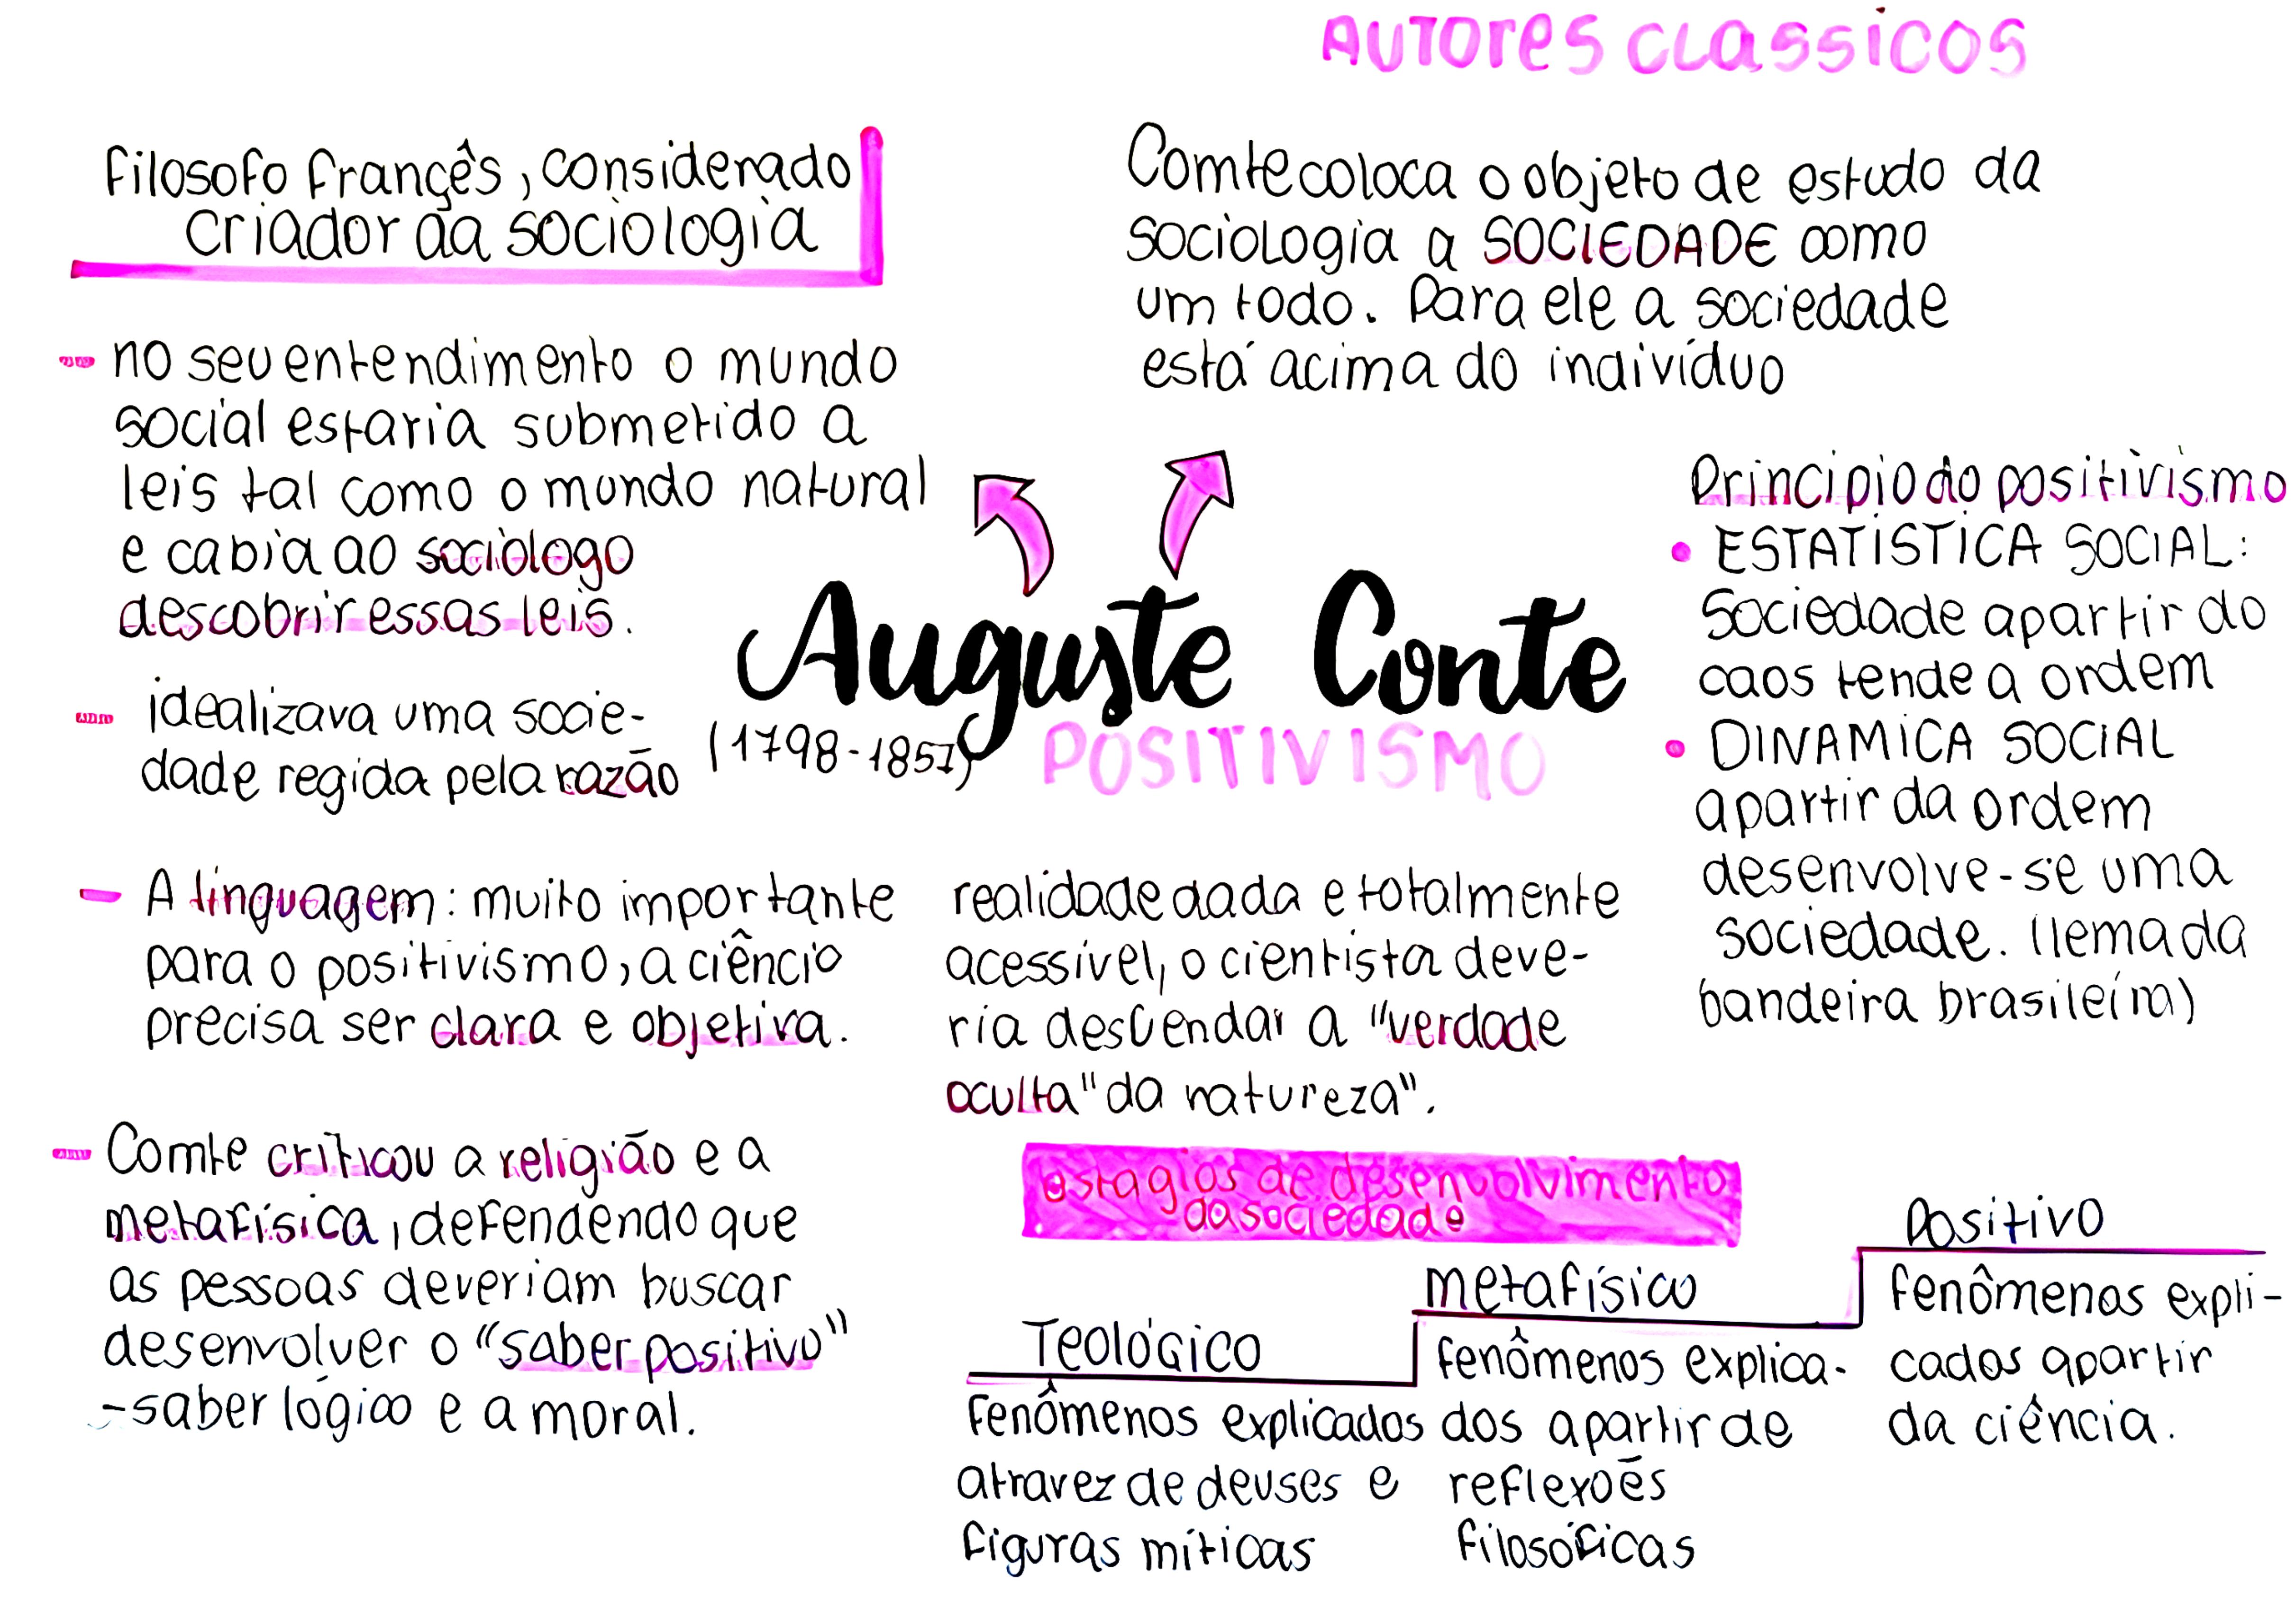 AUTORES CLASSICOS
Filosofo françês, considerado
criador da sociologia
- no seu entendimento o mundo
social estaria submetido a
leis tal como o mundo natural
e cabia ao sociólogo
descobrir essas leis.
- idealizava uma socie-
dade regida pela razão
- A linguagem: muito importante
para o positivismo, a ciência
precisa ser clara e objetiva.
- Comte criticou a religião e a
metafísica, defendendo que
as pessoas deveriam buscar
desenvolver o "saber positivo"
-saber lógico e a moral.
Comte coloca o objeto de estudo da
sociologia a SOCIEDADE como
um todo. Para ele a sociedade
está acima do indivíduo
Auguste Conte
(1798-1857)
POSITIVISMO
realidade dada e totalmente
acessível, o cientista deve-
ria desvendar a "verdade
oculta" da natureza".
Principio do positivismo
• ESTATÍSTICA SOCIAL:
Sociedade apartir do
caos tende a ordem
• DINAMICA SOCIAL
apartir da ordem
desenvolve-se uma
sociedade. (lema da
bandeira brasileira)
estagios de desenvolvimento
da sociedade
Teológico
Fenômenos explicados
atravez de deuses e
figuras míticas
metafísico
fenômenos explica-
dos apartir de
reflexões
filosóficas
Positivo
fenômenos expli-
cados apartir
da ciência.